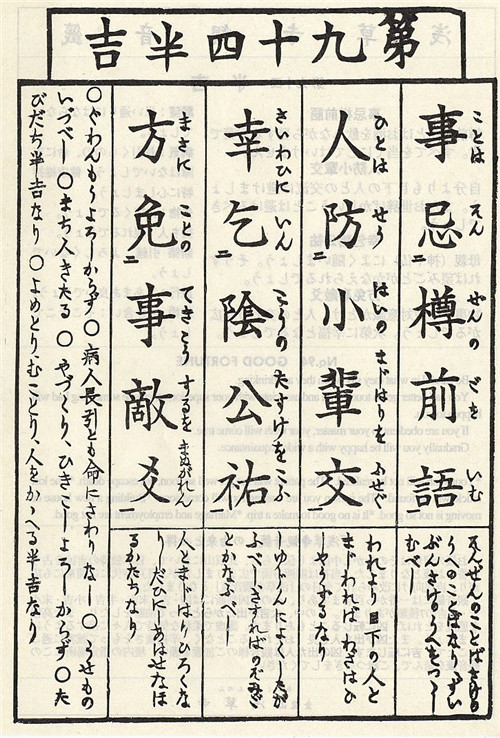 第九十四半吉
事忌樽前語
ことは ぜんの ごを いむ
ぜんのことば
うへのことばなり
人防小輩交
ひとは せう はいの まじはりを ふせぐ
われより目下の人と
まじわればわざはひ
しやうずるなり
幸乞陰公祐
さわひに いん こうの たすけを こふ
ふべしさすればのぞみご
とかなふべし
方免事敵爻
まさに ことの てきこう するを まぬがれん
人とまじはりひろくな
りしだひにしあはせなほ
るかたちなり
〇ぐわんもうよろしからず〇病人長引とも命にさわりなし〇うせもの
いづべし〇まち人きたる〇やづくり、ひきこしよろしからず〇た
びだち半吉なり〇よめとり、むことり、人をかゝへる半吉なり